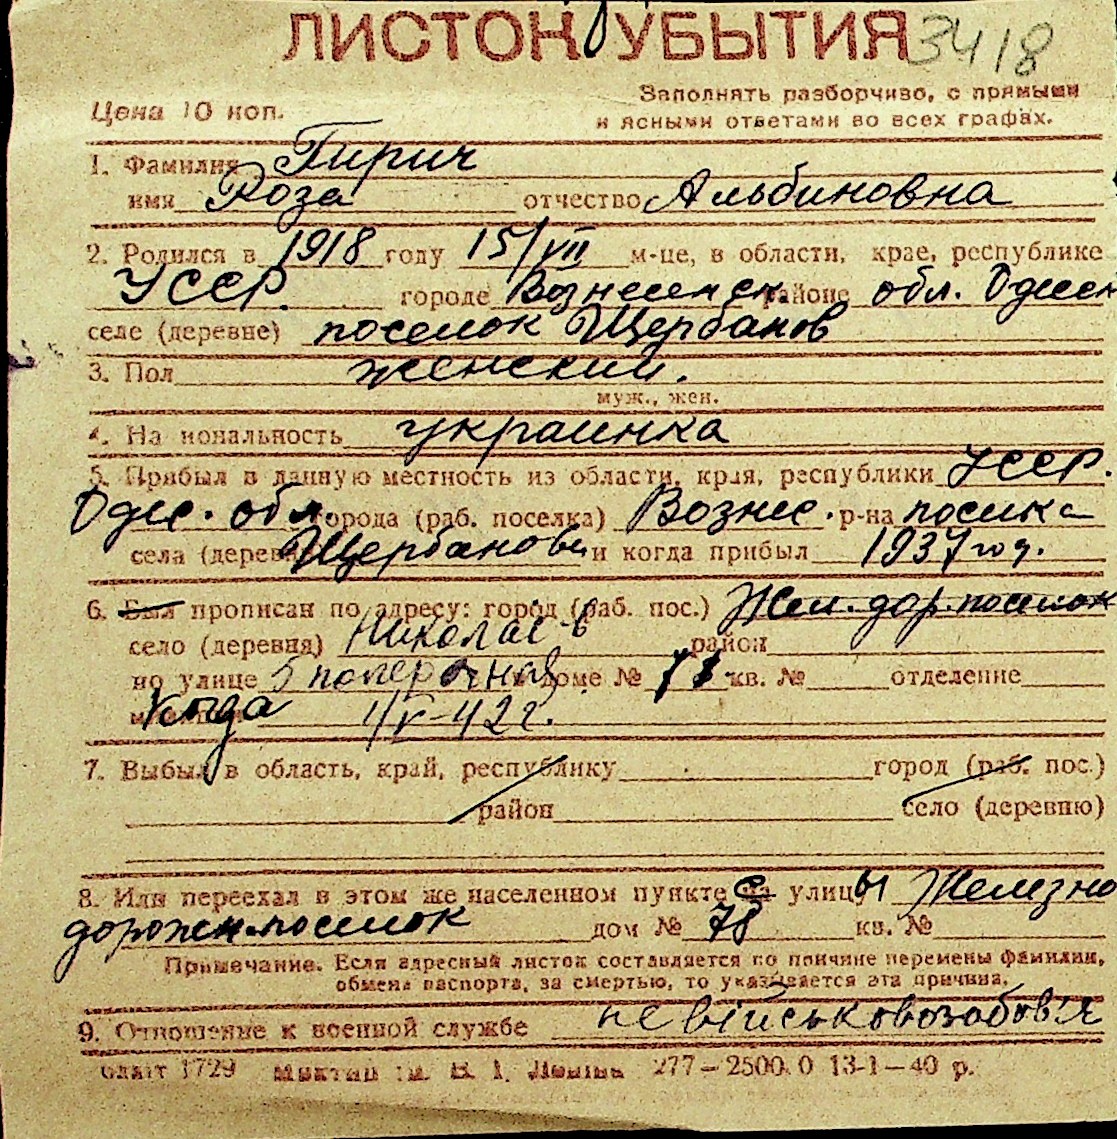 ЛИСТОК УБЫТИЯ 3418
Цена 10 коп.
Заполнять разборчиво, с прямыми
и ясными ответами во всех графах.
1. Фамилия Гирич
имя Роза отчество Альбиновна
2. Родился в 1918 году 15/VII м-це, в области, крае, республике
УССР. городе Вознесенск районе обл. Одесск
селе (деревне) поселок Щербанов
3. Пол женский.
муж., жен.
4. На иональность украинка
5. Прибыл в данную местность из области, края, республики УССР.
Одес. обл. города (раб. поселка) Вознес. р-на поселка
села (дерев Щербанови и когда прибыл 1937 год.
6. Был прописан по адресу: город (раб. пос.) Жел. дор. поселок
село (деревня) Николаев район
по улице 5 поперечная доме № кв. № отделение
Когда 1/V-42 г.
7. Выбыл в область, край, республику город (раб. пос.)
район село (деревню)
8. Или переехал в этом же населенном пункте с на улицы Железно
дорожн. поселок дом № 78 кв. №
Примечание. Если адресный листок составляется по причине перемены фамилии,
обмена паспорта, за смертью, то указывается эта причина.
9. Отношение к военной службе не військовозобов'я
1729 277–2500.0 13-1–40 р.